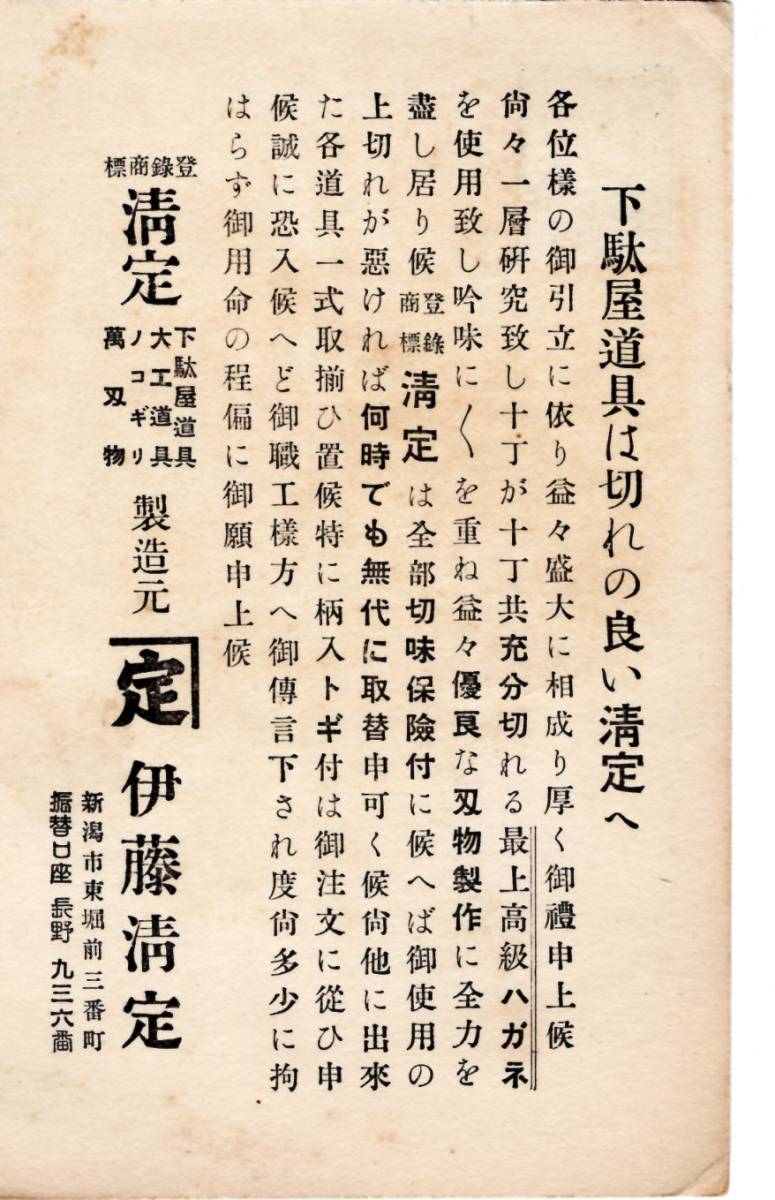 下駄屋道具は切れの良い淸定へ
各位樣の御引立に依り益々盛大に相成り厚く御禮申上候
尙々一層硏究致し十丁が十丁共充分切れる最上高級ハガネ
を使用致し吟味に〱を重ね益々優良な刄物製作に全力を
盡し居り候登錄商標淸定は全部切味保險付に候へば御使用の
上切れが惡ければ何時でも無代に取替申可く候尙他に出來
た各道具一式取揃ひ置候特に柄入トギ付は御注文に從ひ申
候誠に恐入候へど御職工樣方へ御傳言下され度尙多少に拘
はらず御用命の程偏に御願申上候
登錄商標
淸定
下駄屋道具
大工道具
ノコギリ
萬刄物
製造元
定
伊藤淸定
新潟市東堀前三番町
振替口座長野九三六番